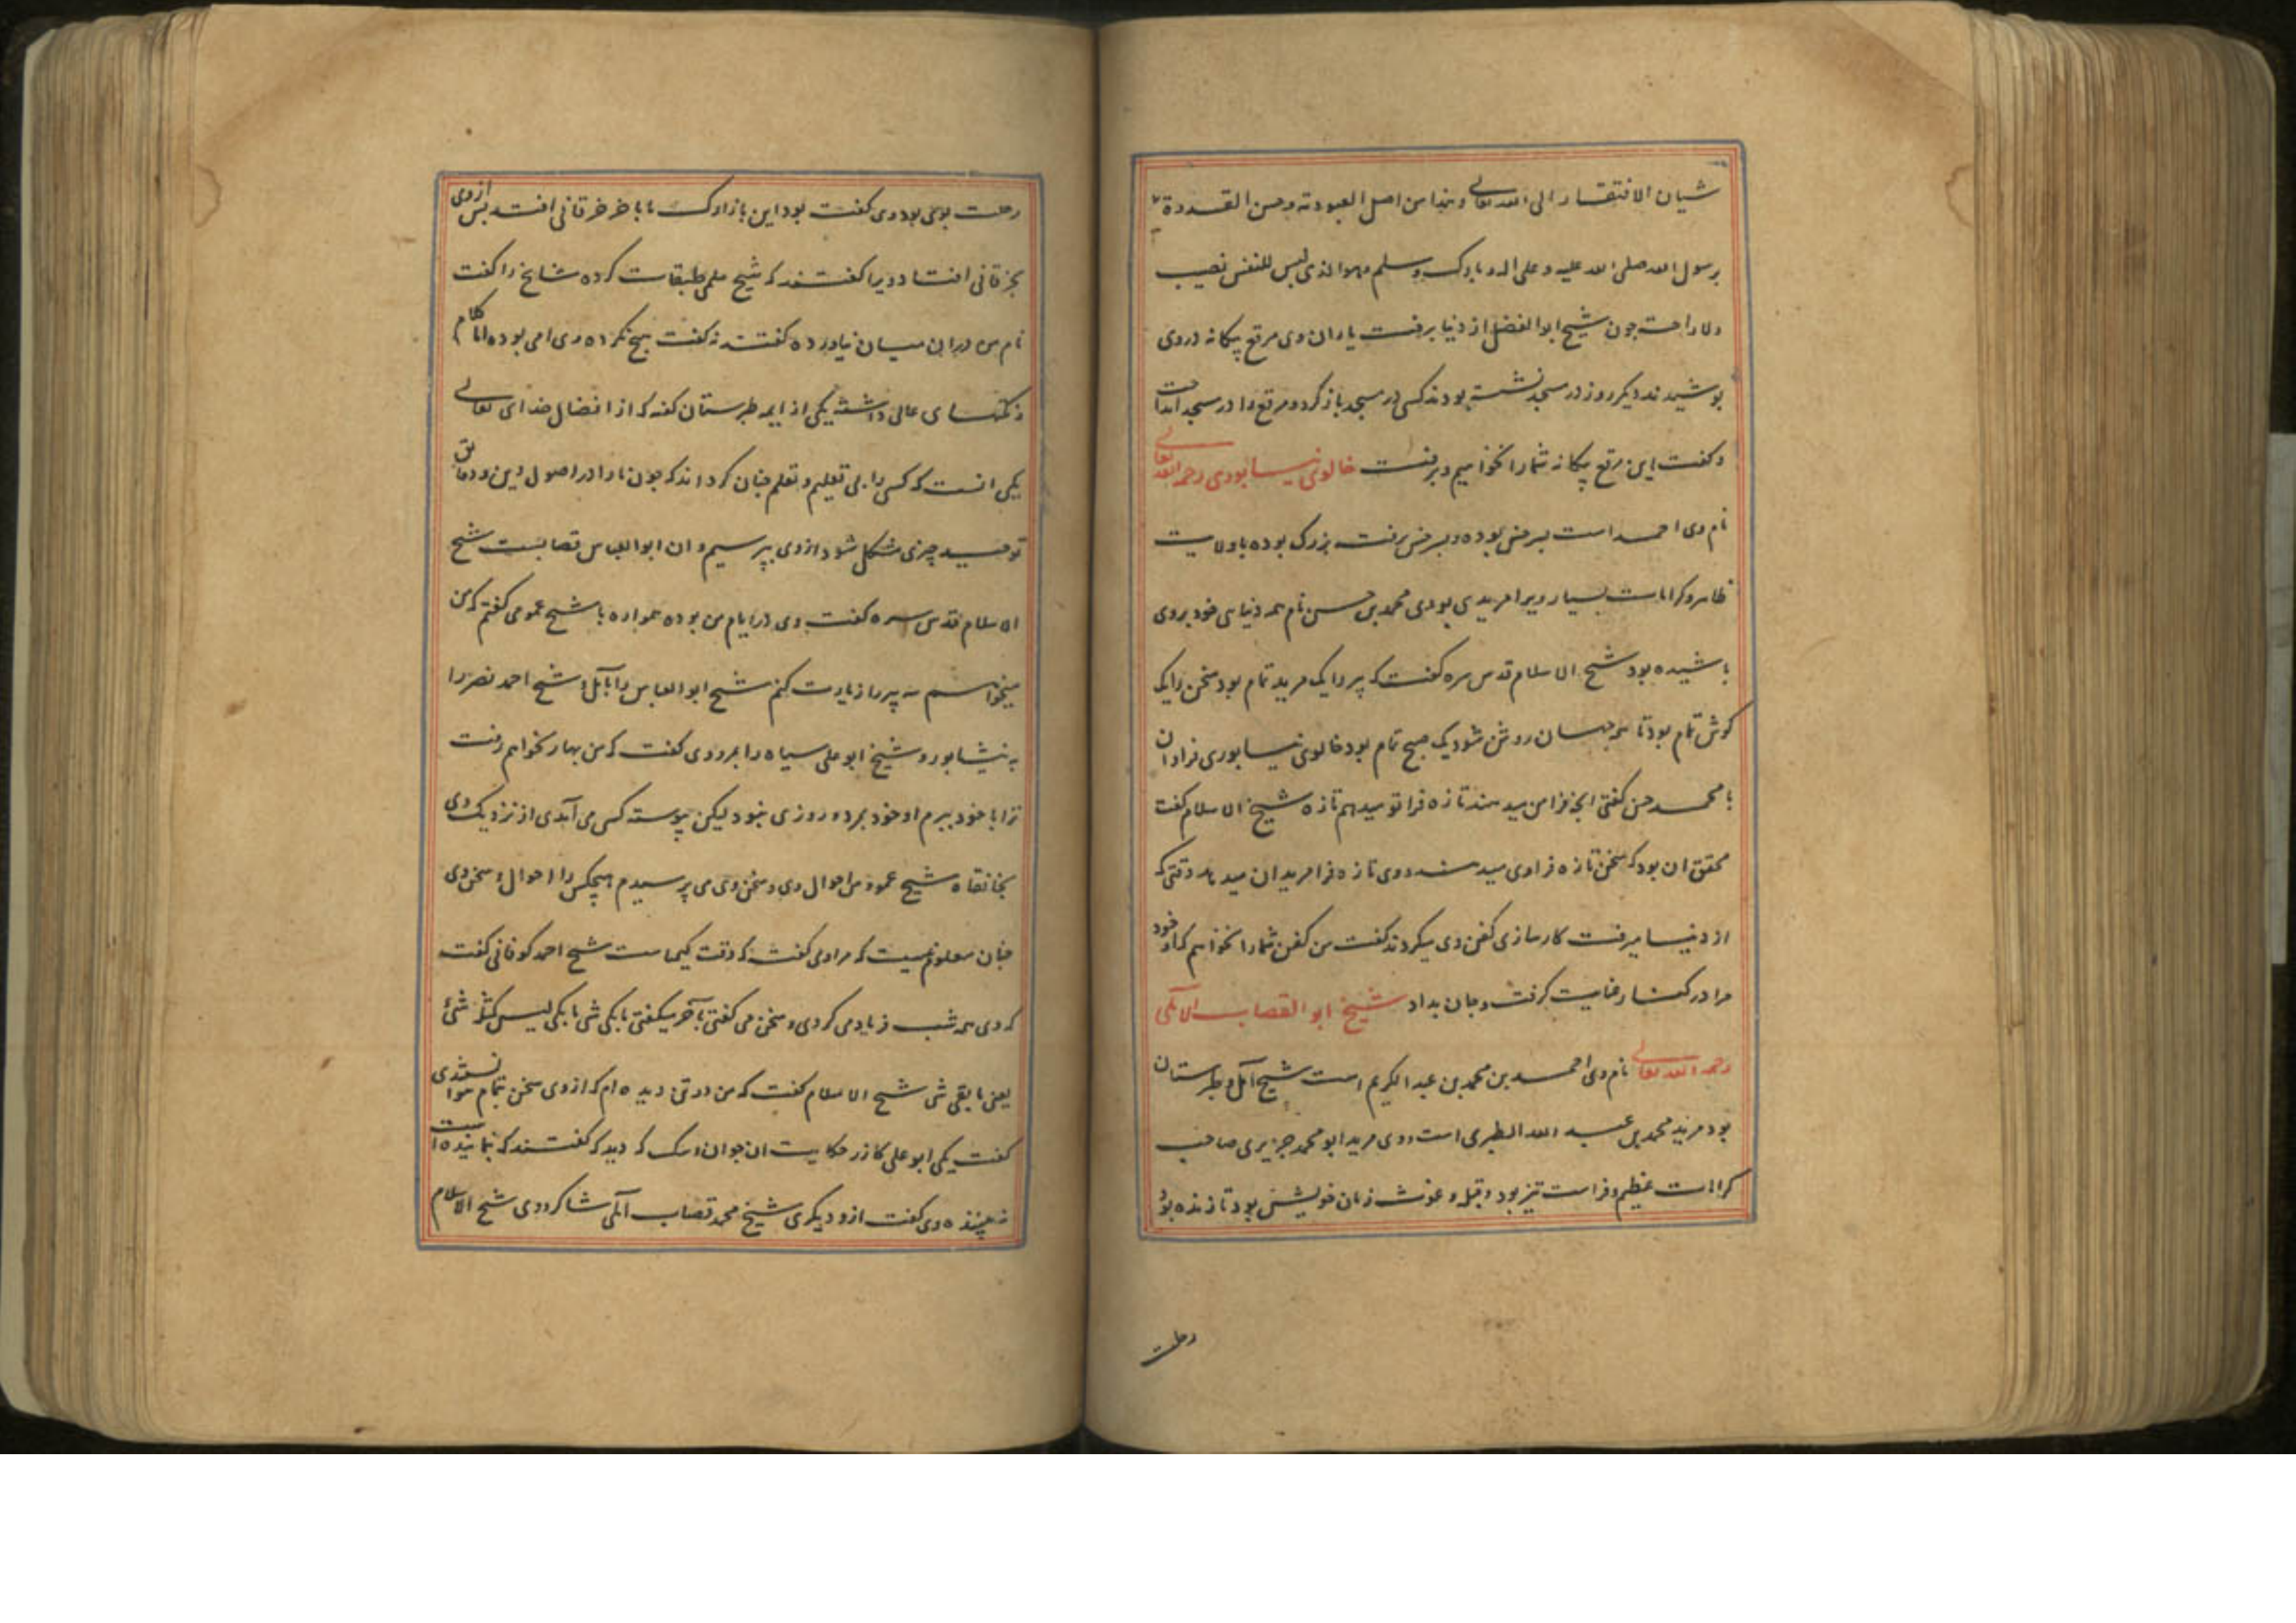 شیان الافتقار الی الله تعالی وهذا من اصل العبودیه وحسن القدوة
برسول الله صلی الله علیه وعلی اله وبارک وسلم وهو الذی لیس للنفس نصیب
ولا راحت چون شیخ ابو الفضل از دنیا برفت یاران وی مرقع پیکانه در وی
پوشیدند دیگر روز در مسجد نشسته بودند کسی در مسجد باز کرد و مرقع را در مسجد انداخت
و کفت این مرقع پیکانه شما را نخواهیم و برفت خالوی نیسابوری رحمه الله تعالی
نام وی احمد است بسرخس بوده و بسرخس برفت بزرک بوده با ولایت
ظاهر و کرامات بسیار ویرا مریدی بودی محمد بن حسن نام همه دنیای خود بروی
پاشیده بود شیخ الاسلام قدس سره کفت که پیر را یک مرید تمام بود سخن را یک
کوش تمام بود تا همه جهان روشن شود یک صبح تمام بود خالوی نیسابوری فراوان
با محمد حسن کفتی انچه فرا من میدهند تازه فرا تو میدهم تازه شیخ الاسلام کفت
محقق ان بود که سخن تازه فرا وی میدهند و وی تازه فرا مریدان میدهد وقتی که
از دنیا میرفت کارسازی کفن وی میکردند کفت من کفن شما را نخواهم که او خود
مرا در کنار عنایت کرفت و جان بداد شیخ ابو القصاب الآملی
رحمه الله تعالی نام وی احمد بن محمد بن عبد الکریم است شیخ آمل و طبرستان
بود مرید محمد بن عبد الله الطبری است و وی مرید ابو محمد جریری صاحب
کرامات عظیم و فراست تیز بود و قبله و غوث زمان خویش بود تا زنده بود
رحلت
رحلت بوی بود وی کفت بود این بازارک ما با خرخرقانی افتد پس از وی
بخرقانی افتاد ویرا کفتند که شیخ سلمی طبقات کرده مشایخ را کفت
نام من در ان میان نیاورده کفتند نه کفت هیچ نکرده وی امی بوده اما کلام
و نکتهای عالی داشته یکی از ایمه طبرستان کفته که از افضال خدای تعالی
یکی انست که کسی را بی تعلیم و تعلم چنان کرداند که چون ما را در اصول دین و دقایق
توحید چیزی مشکل شود از وی بپرسیم و ان ابو العباس قصابست شیخ
الاسلام قدس سره کفت وی در ایام من بوده همواره با شیخ عمو می کفتم که من
میخواهم سه پیر را زیارت کنم شیخ ابو العباس را بآمل و شیخ احمد نصر را
به نیشابور و شیخ ابو علی سیاه را بمرو وی کفت که من بهار نخواهم رفت
ترا با خود ببرم او خود ببرد و روزی نبود لیکن پیوسته کسی می آمدی از نزدیک وی
بخانقاه شیخ عمو و من احوال وی و سخن وی می پرسیدم هیچکس را احوال و سخن وی
چنان معلوم نیست که مرا وی کفت که وقت کیمیاست شیخ احمد کوفانی کفت
که وی همه شب فریاد می کردی و سخن می کفتی بآخر میکفتی ما بکی شی ما بکی لیس کمثله شئ
یعنی ما بقی شی شیخ الاسلام کفت که من دو تن دیده ام که از وی سخن تمام
کفت یکی ابو علی کازر حکایت ان جوان که دید که کفتند که نماینده است
نه بیننده وی کفت از او دیکری شیخ محمد قصاب آملی شاکرد وی شیخ الاسلام